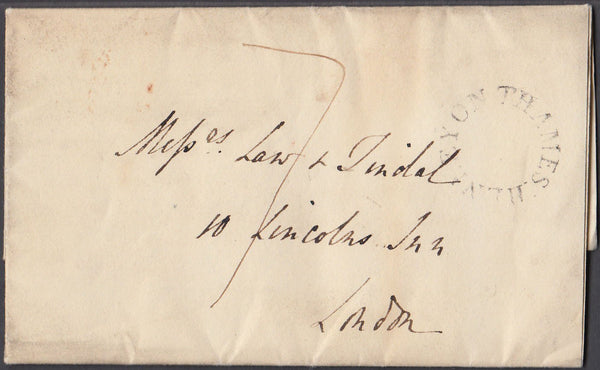 Messrs. Law & Tindal
10 Lincolns Inn
London
7
HENLEY ON THAMES